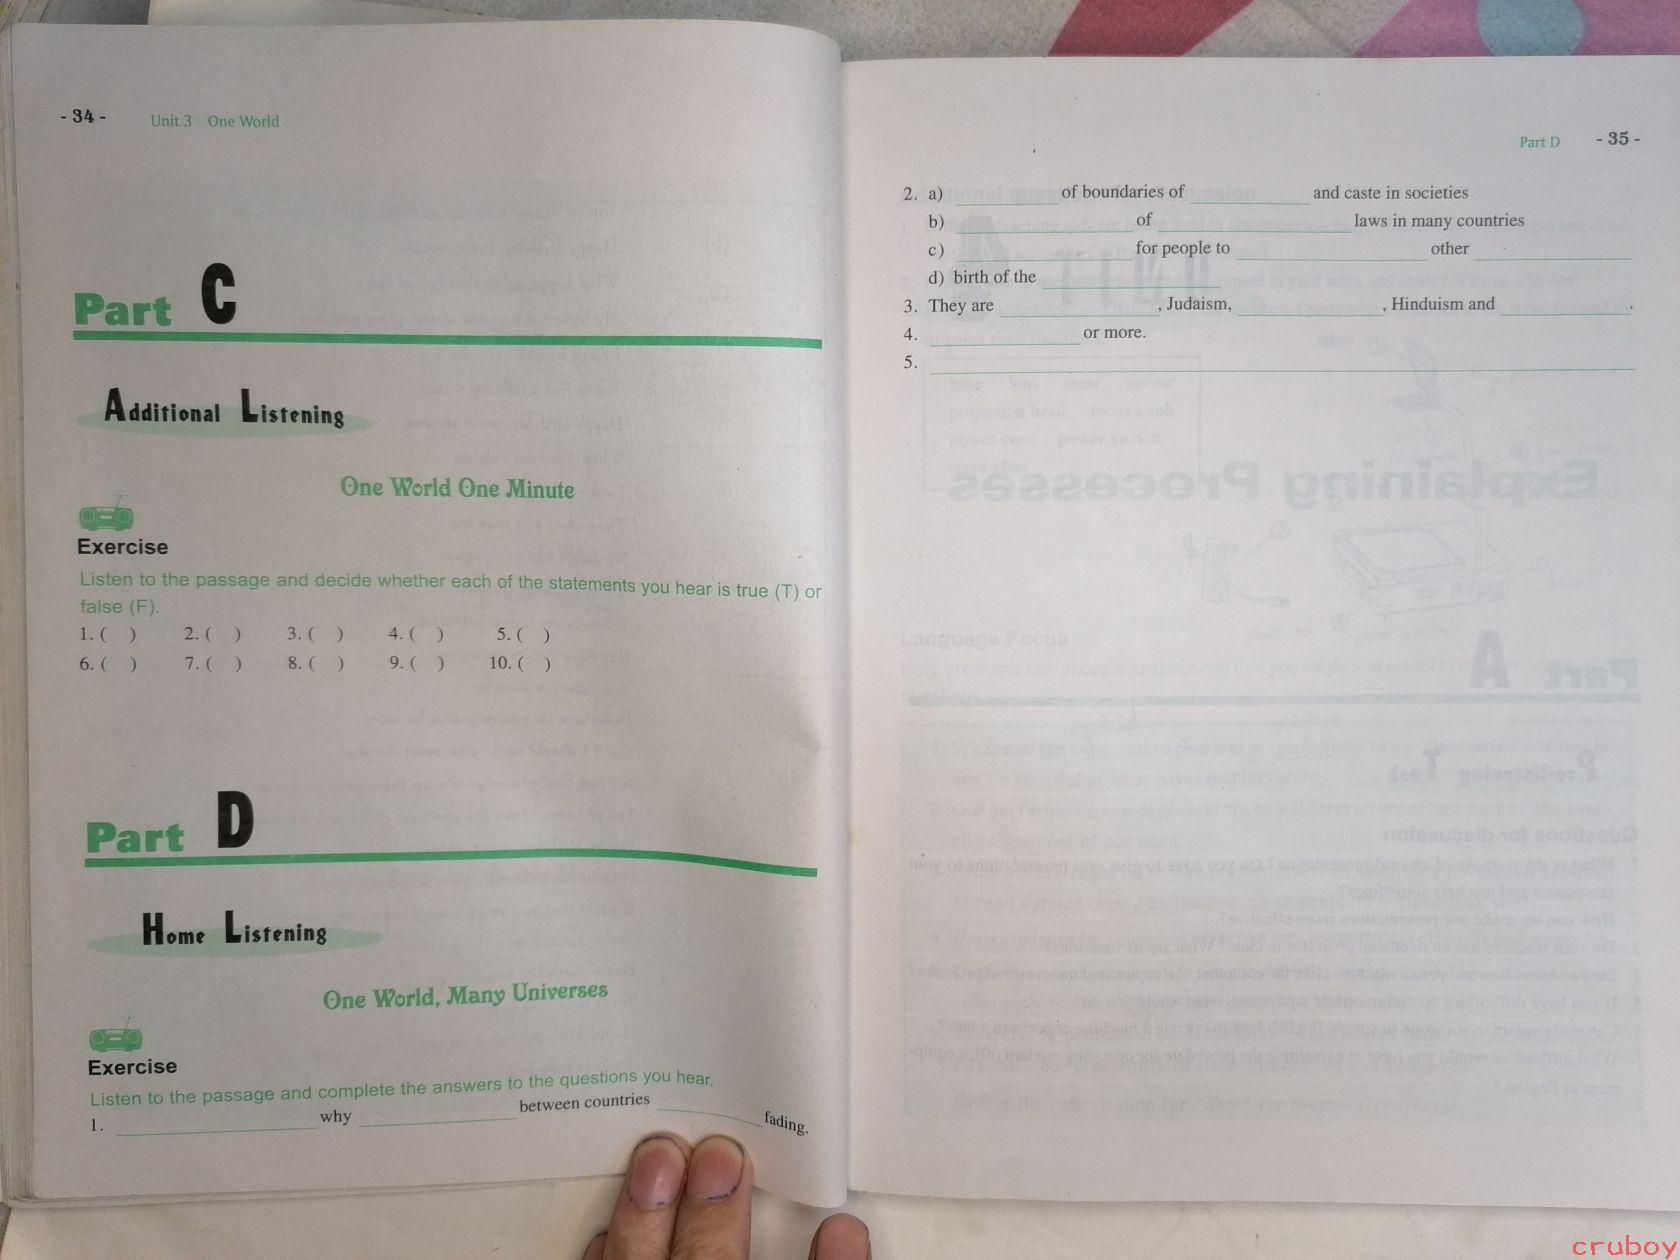 - 34 -
Unit 3 One World
Part C
Additional Listening
One World One Minute
Exercise
Listen to the passage and decide whether each of the statements you hear is true (T) or
false (F).
1. ( ) 2. ( ) 3. ( ) 4. ( ) 5. ( )
6. ( ) 7. ( ) 8. ( ) 9. ( ) 10. ( )
Part D
Home Listening
One World, Many Universes
Exercise
Listen to the passage and complete the answers to the questions you hear.
1. ____ why ____ between countries ____ fading.
Part D - 35 -
2. a) ____ of boundaries of ____ and caste in societies
b) ____ of ____ laws in many countries
c) ____ for people to ____ other ____
d) birth of the ____
3. They are ____, Judaism, ____, Hinduism and ____.
4. ____ or more.
5. ____
Explaining Processes
Part A
Pre-listening Task
Questions for discussion
Language Focus
cruboy